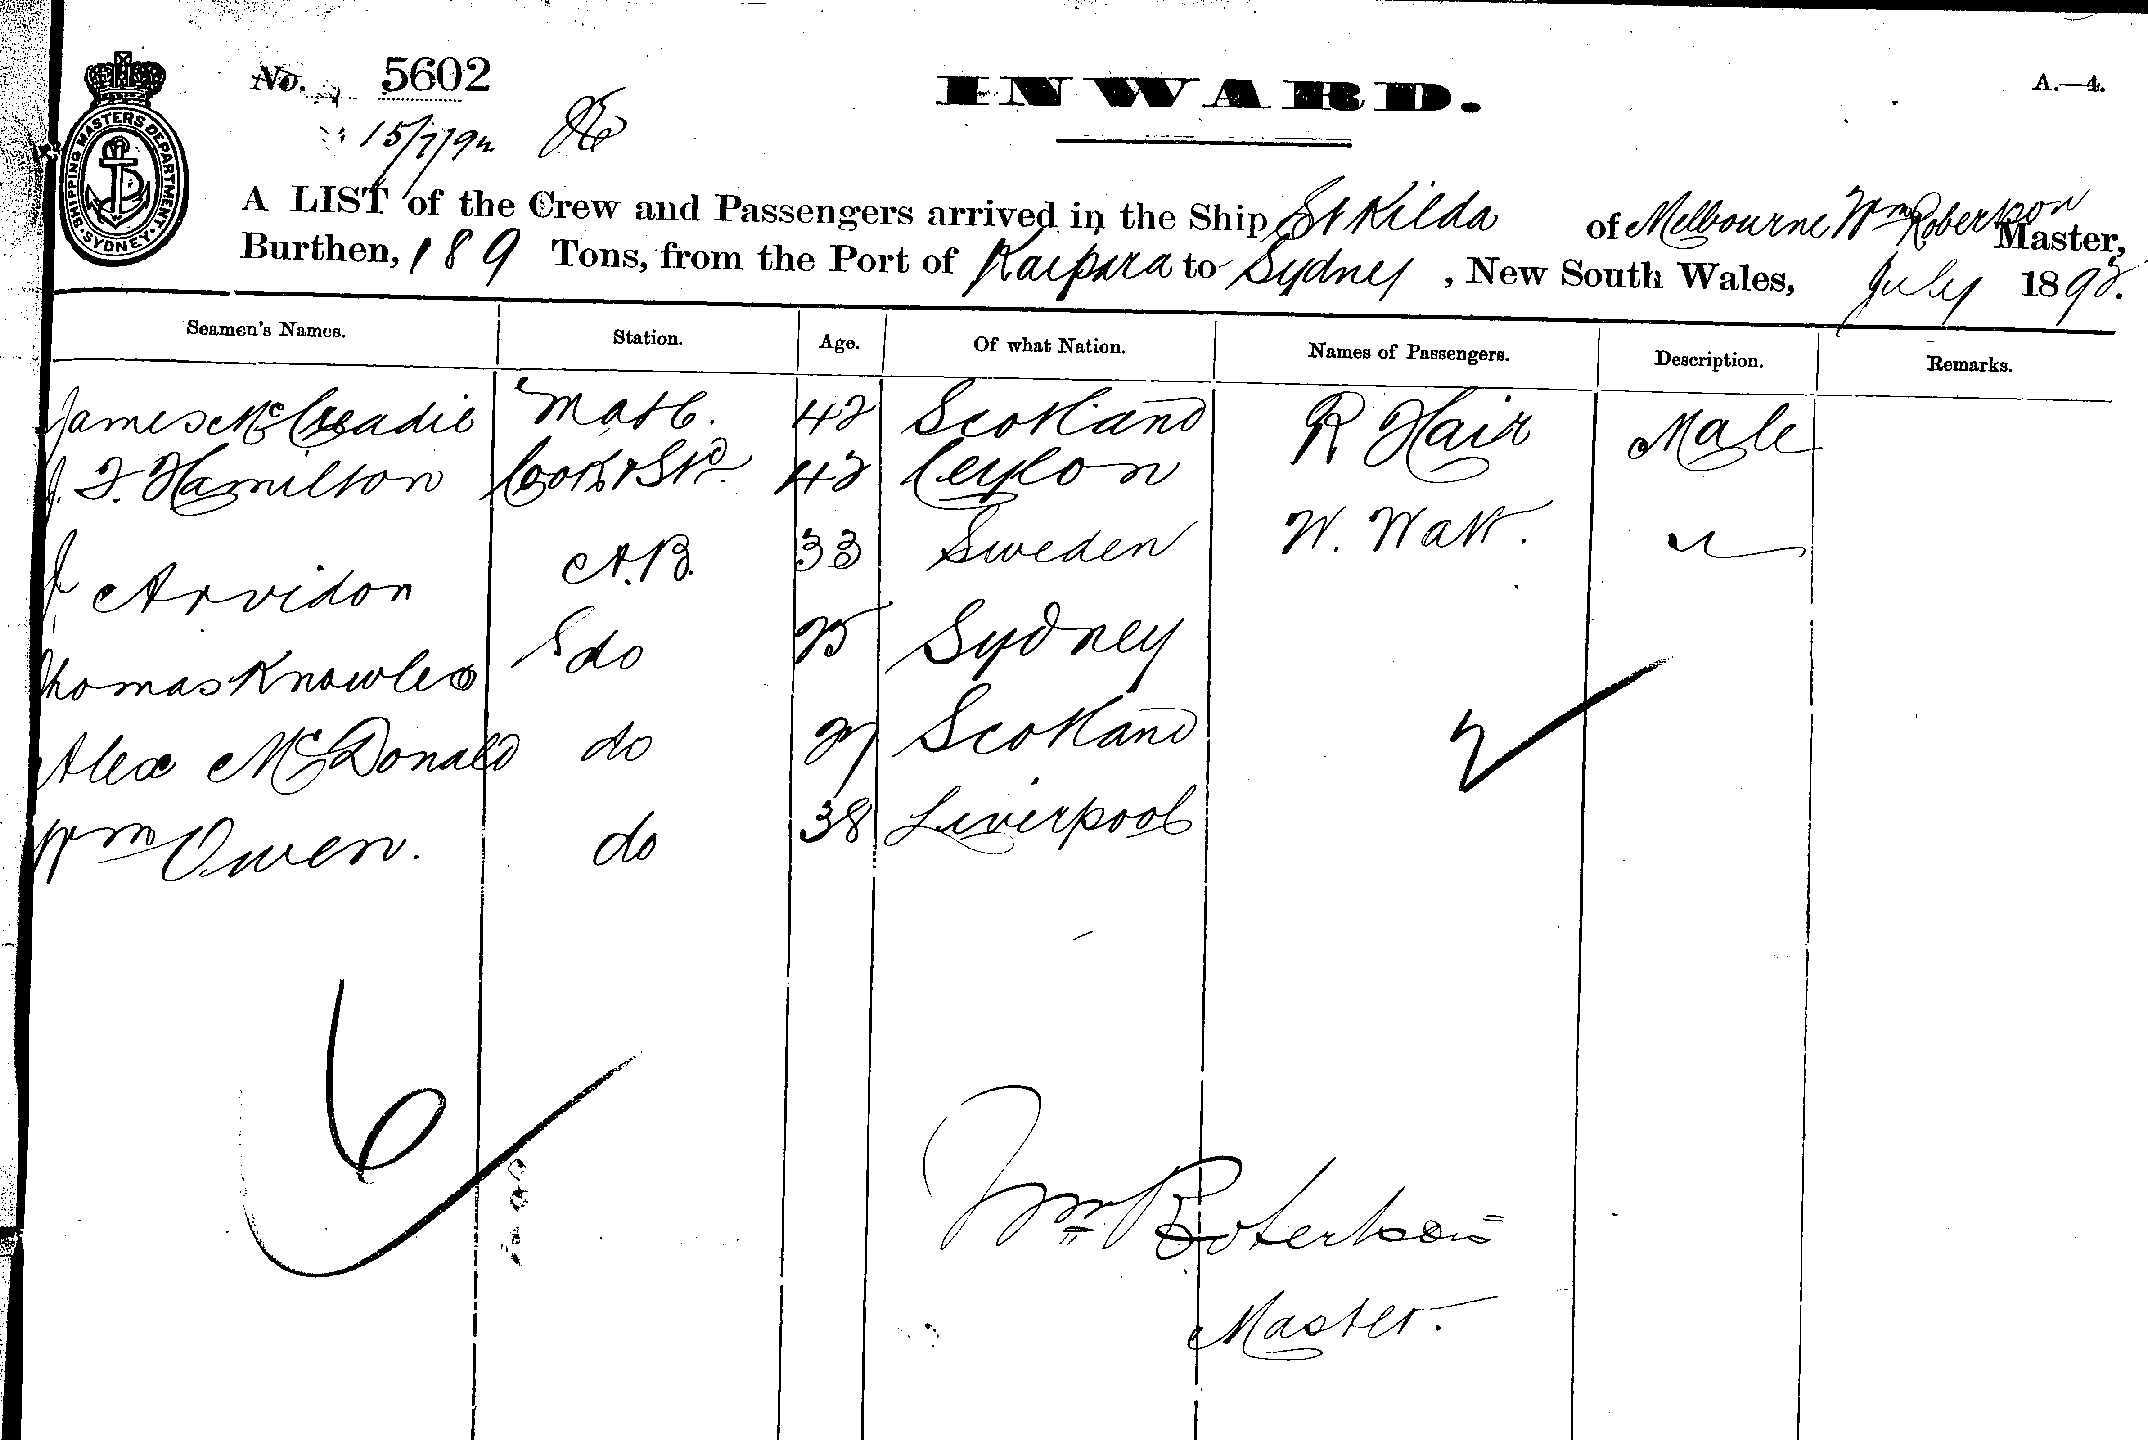 No. 5602
INWARD.
A.—4.
SHIPPING MASTERS DEPARTMENT
SYDNEY
15/7/92
A LIST of the Crew and Passengers arrived in the Ship St Kilda of Melbourne Wm Robertson Master,
Burthen, 189 Tons, from the Port of Kaipara to Sydney, New South Wales, July 1892.
Seamen's Names. Station. Age. Of what Nation. Names of Passengers. Description. Remarks.
James McCreadie Mate. 42 Scotland R Hair Male
J. F. Hamilton Cook & Std. 42 Ceylon
J Arvidon A.B. 33 Sweden W. Watt. "
Thomas Knowles do 25 Sydney
Alex McDonald do 27 Scotland 2
Wm Owen. do 38 Liverpool
6
Wm Robertson
Master.